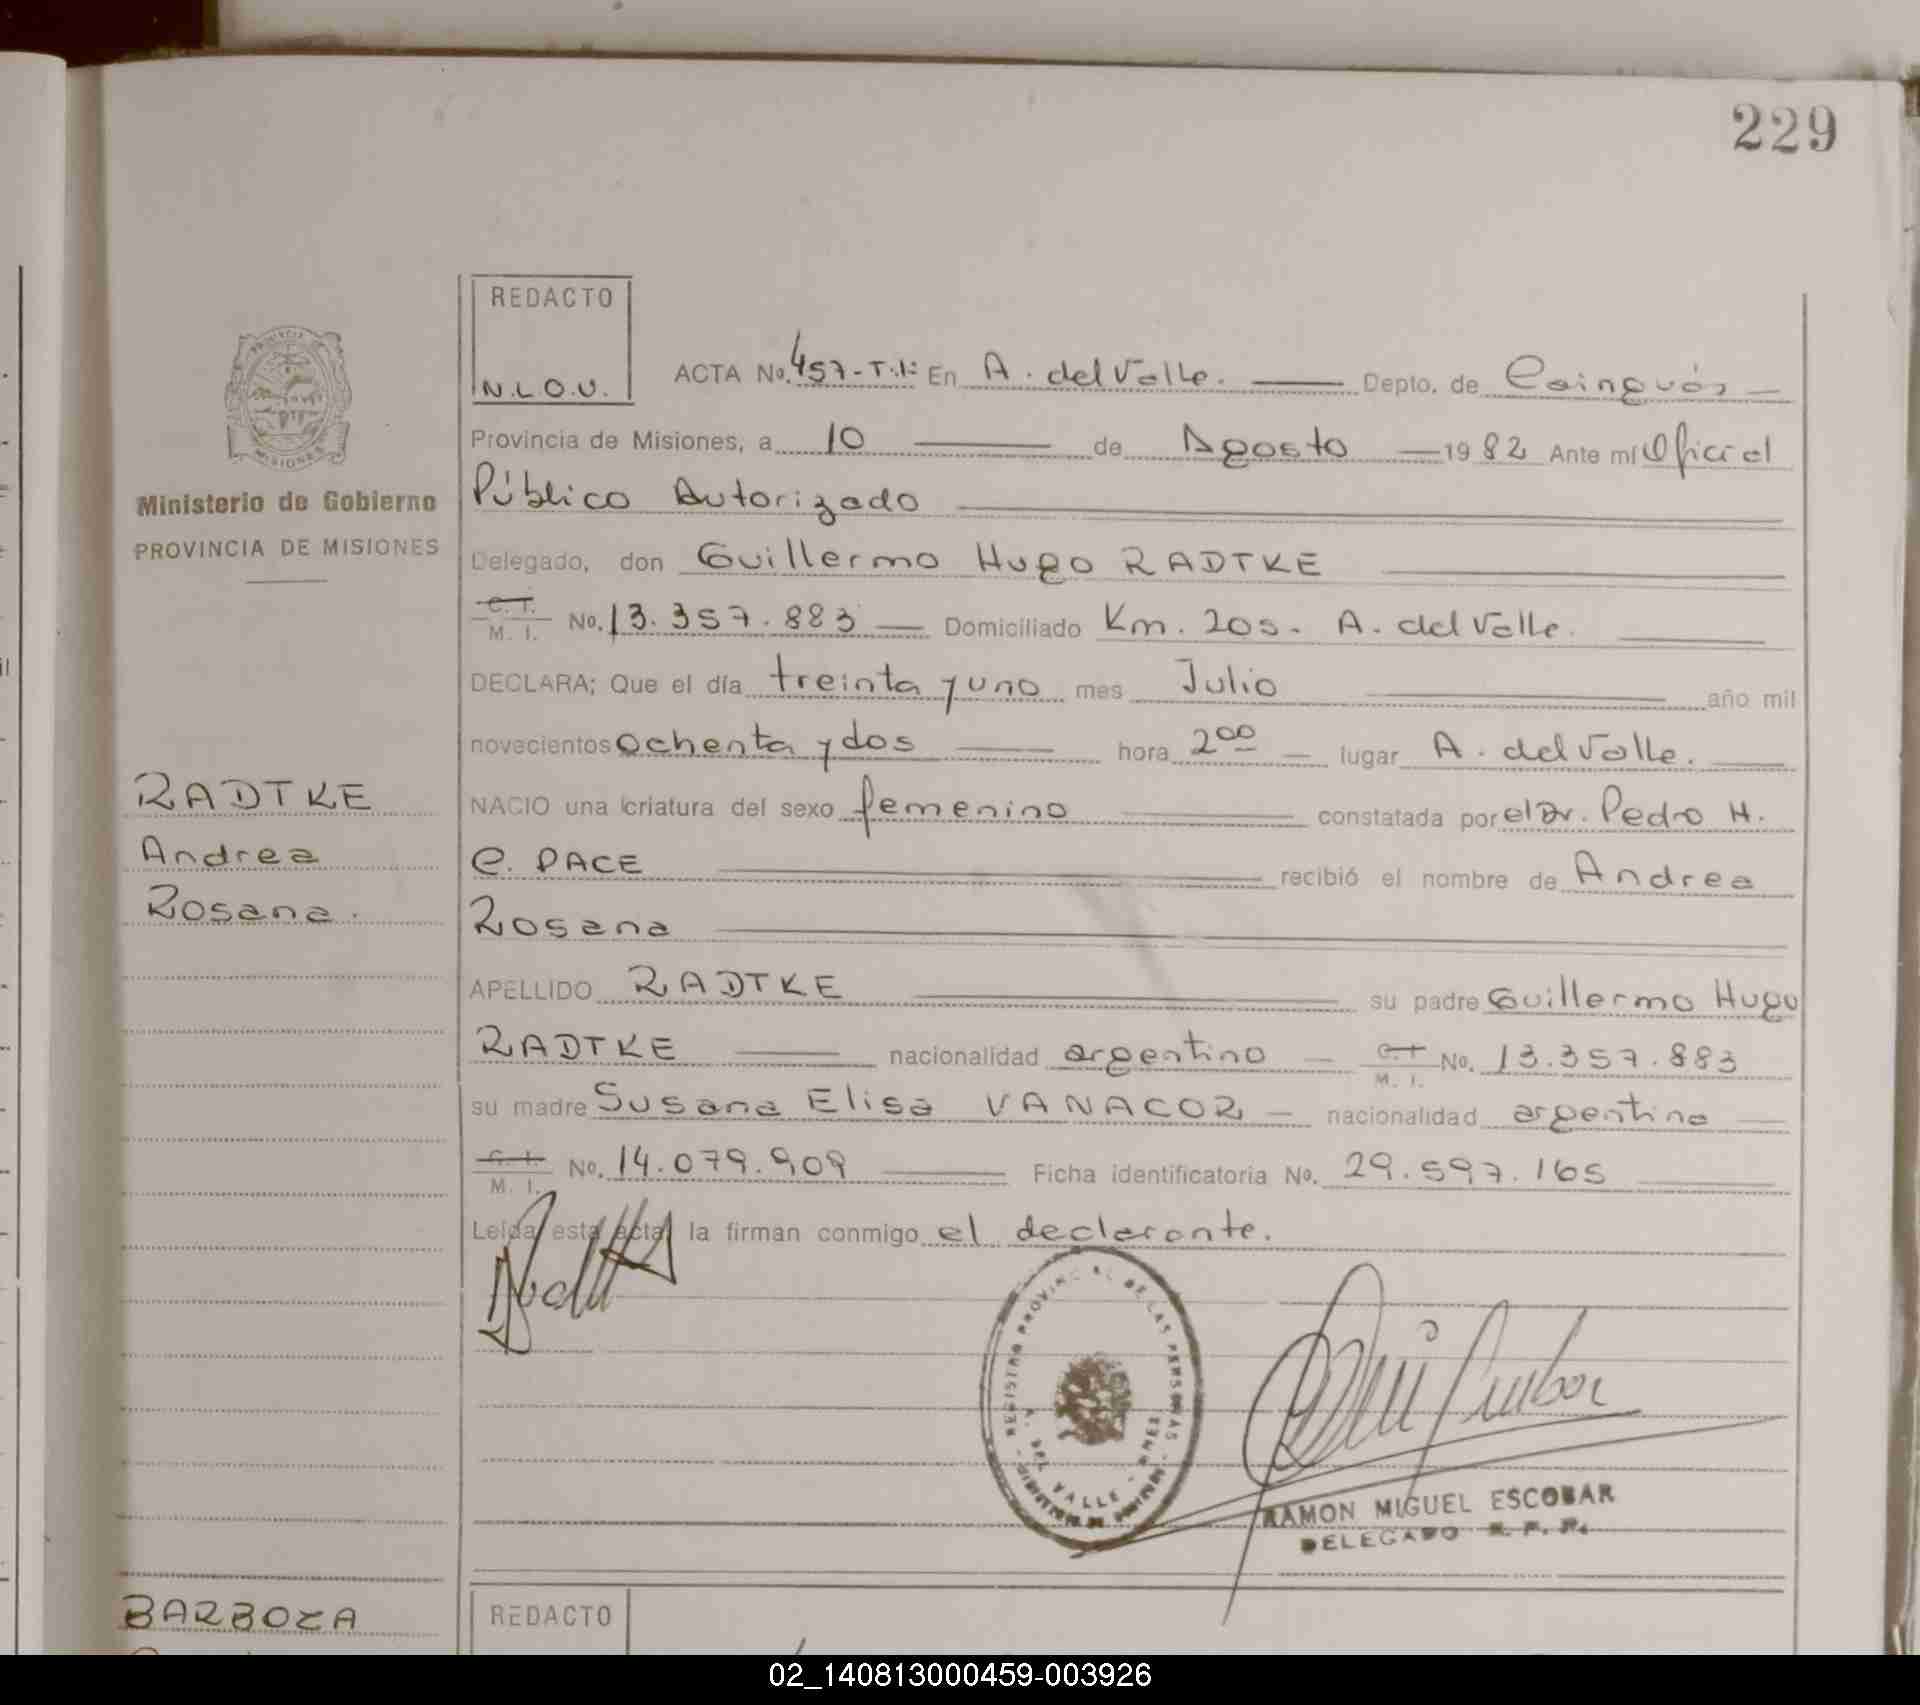 229
REDACTO
N.L.O.V.
ACTA No. 457-T.I: En A. del Valle. Depto. de Cainguás
Provincia de Misiones, a 10 de Agosto 1982 Ante mí Oficial
Público Autorizado
Ministerio de Gobierno
PROVINCIA DE MISIONES
Delegado, don Guillermo Hugo RADTKE
C. I.
M. I. No. 13.357.883 Domiciliado Km. 205. A. del Valle.
DECLARA; Que el día treinta y uno mes Julio año mil
novecientos ochenta y dos hora 200 lugar A. del Valle.
RADTKE
Andrea
Rosana.
NACIO una criatura del sexo femenino constatada por el Dr. Pedro H.
C. PACE recibió el nombre de Andrea
Rosana
APELLIDO RADTKE su padre Guillermo Hugo
RADTKE nacionalidad argentino C. I. M. I. No. 13.357.883
su madre Susana Elisa VANACOR nacionalidad argentina
C. I.
M. I. No. 14.079.909 Ficha identificatoria No. 29.597.165
Leída esta acta, la firman conmigo el declarante.
REGISTRO PROVINCIAL DE LAS PERSONAS
A. DEL VALLE - MNES.
RAMON MIGUEL ESCOBAR
DELEGADO R. P. P.
BARBOZA
REDACTO
02_140813000459-003926